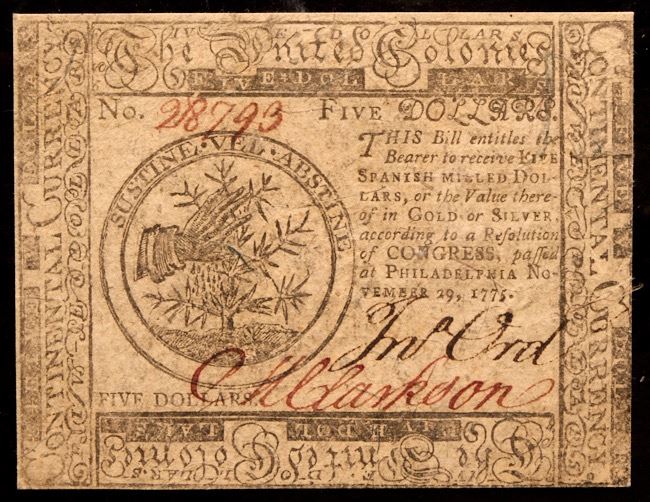 FIVE DOLLARS
The United Colonies
FIVE DOLLARS
No. 28793 FIVE DOLLARS.
SUSTINE · VEL · ABSTINE
THIS Bill entitles the
Bearer to receive FIVE
SPANISH MILLED DOL-
LARS, or the Value there-
of in GOLD or SILVER,
according to a Resolution
of CONGRESS, passed
at PHILADELPHIA NO-
VEMBER 29, 1775.
Jno. Ord
M Clarkson
FIVE DOLLARS
CONTINENTAL CURRENCY
FIVE DOLLARS
CONTINENTAL CURRENCY
FIVE DOLLARS
The United Colonies